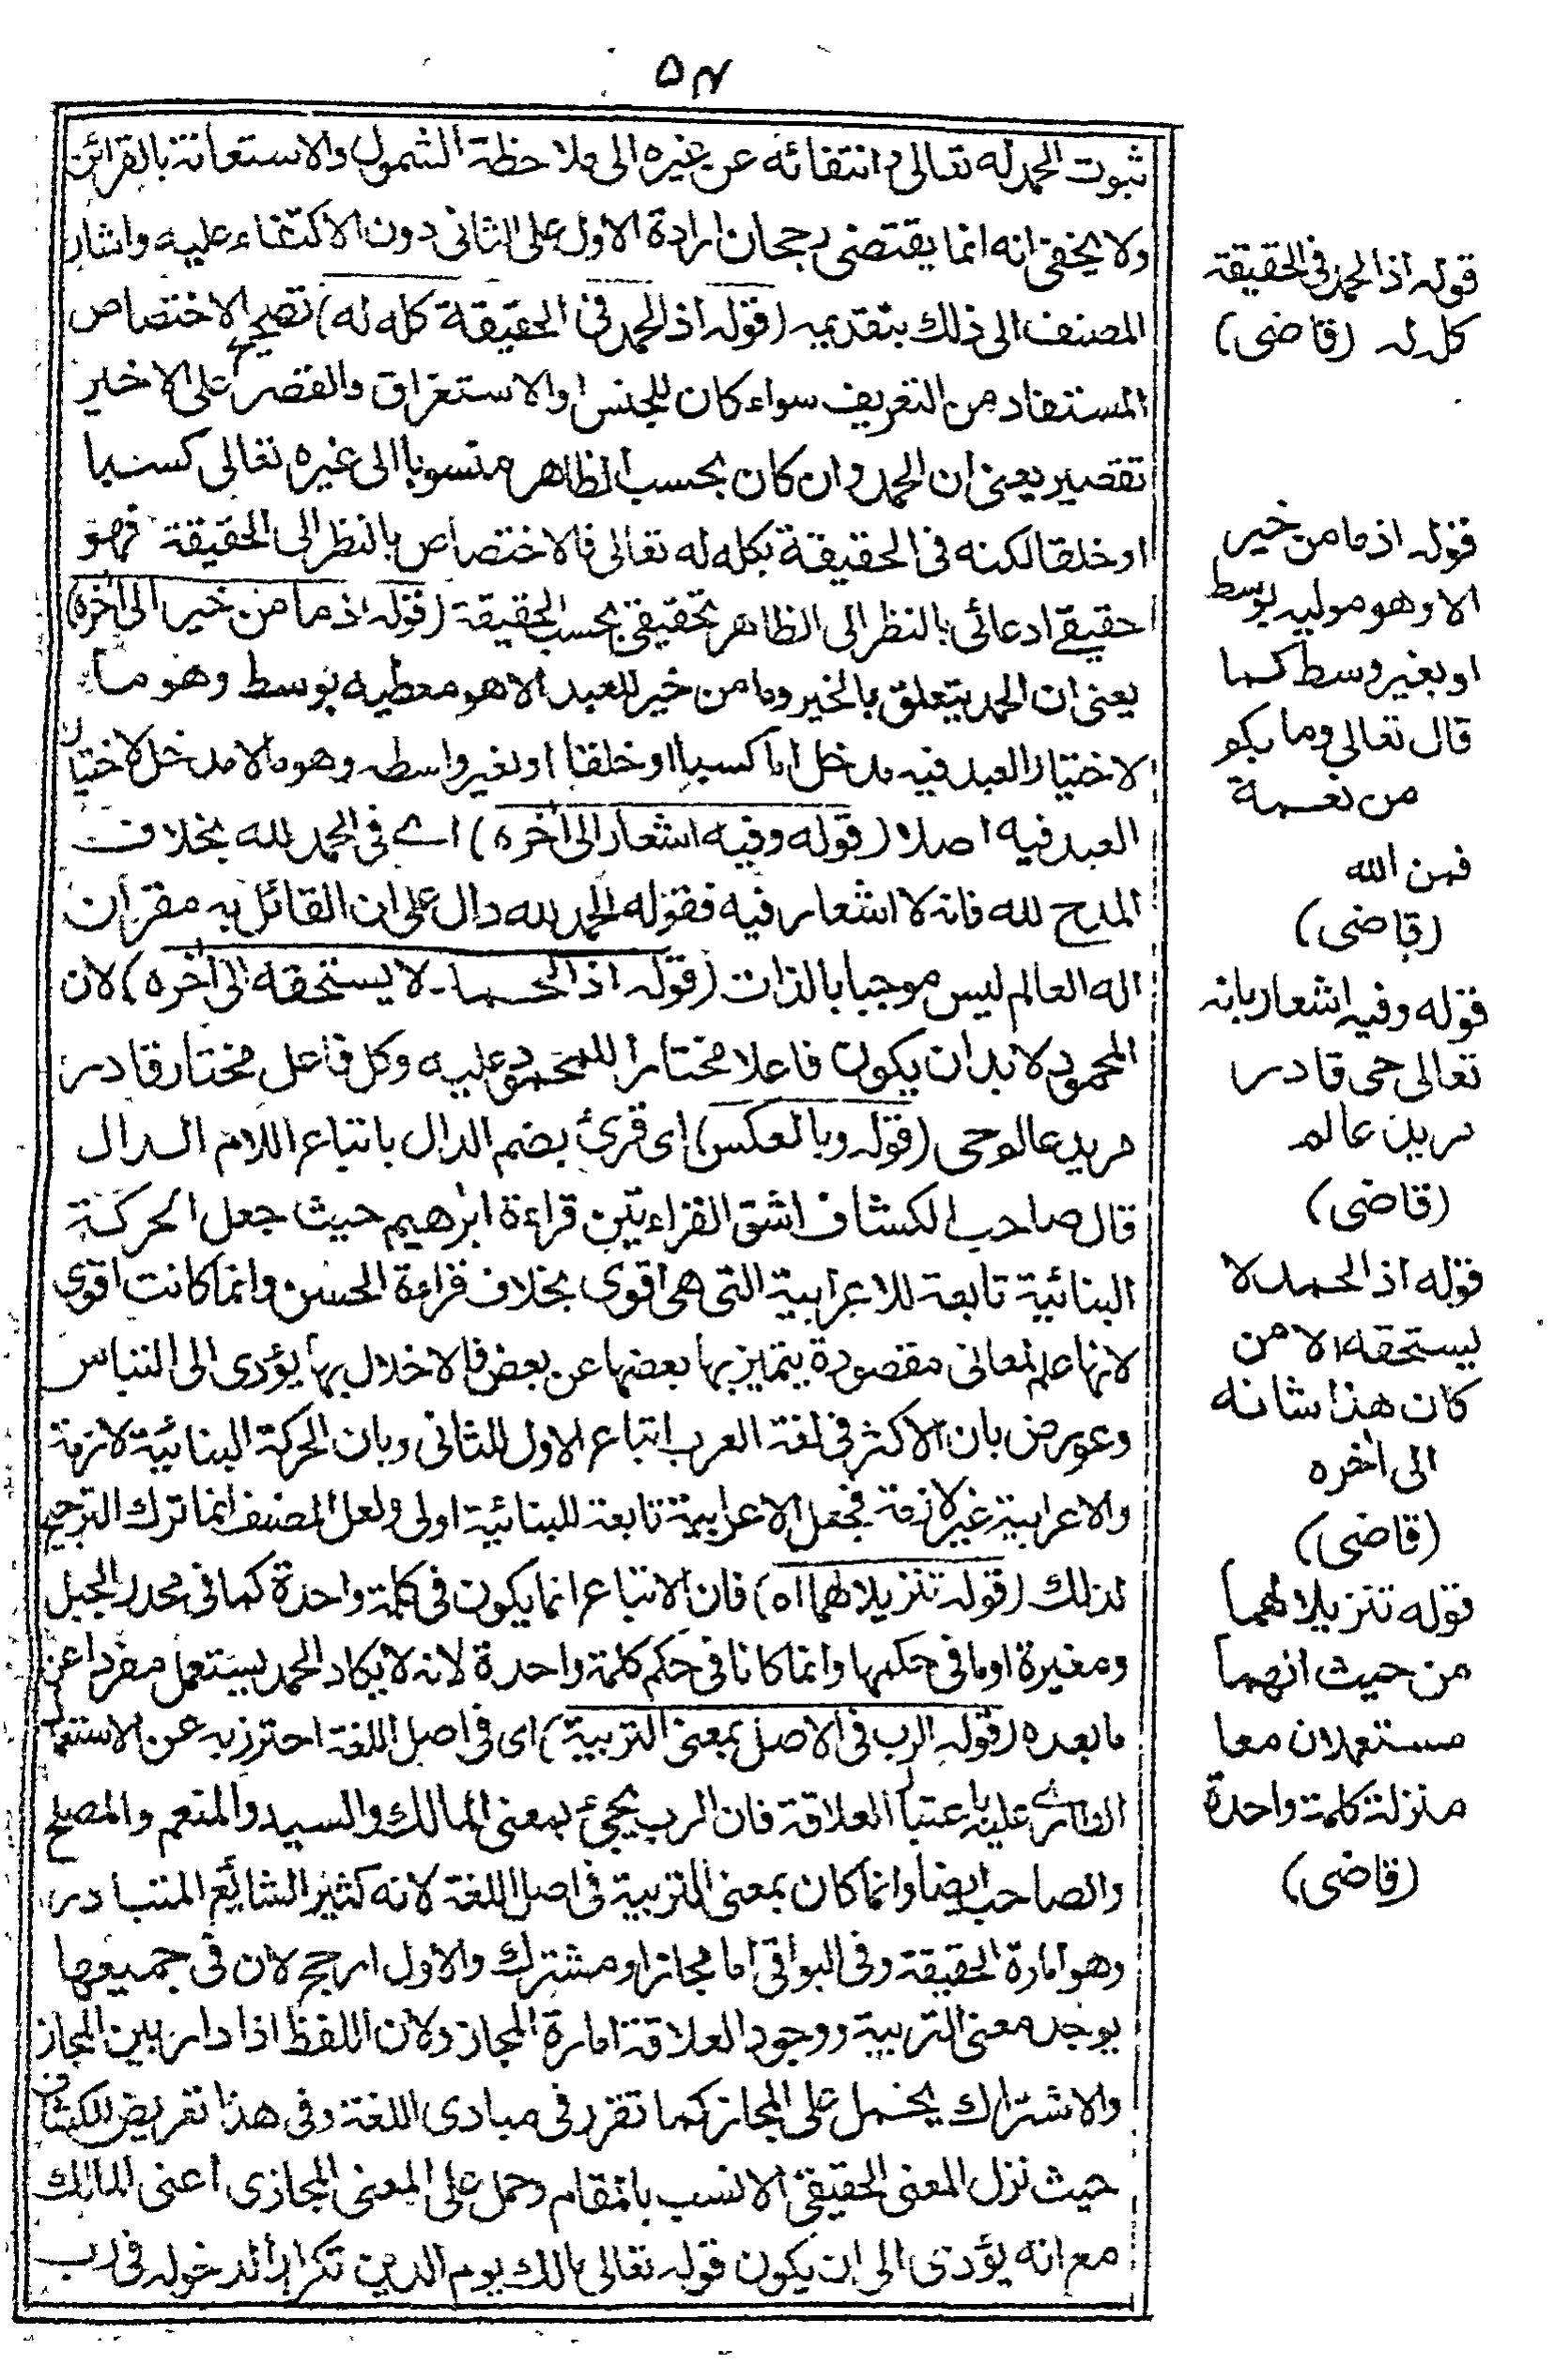 ٥٧
ثبوت الحمد له تعالى وانتفائه عن غيره الى ملاحظة الشمول والاستعانة بالقرائن
ولا يخفى انه انما يقتضى رجحان ارادة الاول على الثانى دون الاكتفاء عليه واشار
المصنف الى ذلك بتقديمه (قوله اذ الحمد فى الحقيقة كله له) تصحيح الاختصاص
المستفاد من التعريف سواء كان للجنس او الاستغراق والقصر على الاخير
تقصير يعنى ان الحمد وان كان بحسب الظاهر منسوبا الى غيره تعالى كسبا
او خلقا لكنه فى الحقيقة بكله له تعالى فالاختصاص بالنظر الى الحقيقة فهو
حقيقى ادعائى بالنظر الى الظاهر تحقيقى بحسب الحقيقة (قوله اذ ما من خير الى اخره)
يعنى ان الحمد يتعلق بالخير وما من خير للعبد الا هو معطيه بوسط وهو ما
لاختيار العبد فيه مدخل اما كسبا او خلقا او بغير واسطه وهو مالا مدخل لاختيار
العبد فيه اصلا (قوله وفيه اشعار الى اخره) اے فى الحمد لله بخلاف
المدح لله فانه لا اشعار فيه فقوله الحمد لله دال على ان القائل به مقر ان
اله العالم ليس موجبا بالذات (قوله اذ الحمد لا يستحقه الى اخره) لان
المحمود لابد ان يكون فاعلا مختارا للمحمود عليه وكل فاعل مختار قادر
مريد عالم حى (قوله وبالعكس) اى قرئ بضم الدال باتباع اللام الدال
قال صاحب الكشاف اشق القراءتين قراءة ابرهيم حيث جعل الحركة
البنائية تابعة للاعرابية التى هى اقوى بخلاف قراءة الحسن وانما كانت اقوى
لانها علم لمعانى مقصودة يتميز بها بعضها عن بعض فالاخلال بها يؤدى الى التباس
وعورض بان الاكثر فى لغة العرب اتباع الاول للثانى وبان الحركة البنائية لازمة
والاعرابية غير لازمة فجعل الاعرابية تابعة للبنائية اولى ولعل المصنف انما ترك الترجيح
لذلك (قوله تنزيلا لهما اه) فان الاتباع انما يكون فى كلمة واحدة كما فى محدر الجبل
ومغيرة او ما فى حكمها وانما كانا فى حكم كلمة واحدة لانه لا يكاد الحمد يستعمل مفردا عن
ما بعده (قوله الرب فى الاصل بمعنى التربية) اى فى اصل اللغة احترز به عن الاستعمال
الطارى عليه باعتبار العلاقة فان الرب يجئ بمعنى المالك والسيد والمنعم والمصلح
والصاحب ايضا وانما كان بمعنى التربية فى اصل اللغة لانه كثير الشائع المتبادر
وهو امارة الحقيقة وفى البواقى اما مجاز او مشترك والاول ارجح لان فى جميعها
يوجد معنى التربية ووجود العلاقة امارة المجاز ولان اللفظ اذا دار بين المجاز
والاشتراك يحمل على المجاز كما تقرر فى مبادى اللغة وفى هذا تعريض للكشاف
حيث نزل المعنى الحقيقى الانسب بالمقام وحمل على المعنى المجازى اعنى المالك
مع انه يؤدى الى ان يكون قوله تعالى مالك يوم الدين تكرارا لدخوله فى رب
قوله اذ الحمد فى الحقيقة
كله له (قاضى)
قوله اذ ما من خير
الا وهو موليه بوسط
او بغير وسط كما
قال تعالى وما بكم
من نعمة
فمن الله
(قاضى)
قوله وفيه اشعار بانه
تعالى حى قادر
مريد عالم
(قاضى)
قوله اذ الحمد لا
يستحقه الا من
كان هذا شانه
الى اخره
(قاضى)
قوله تنزيلا لهما
من حيث انهما
مستعملان معا
منزلة كلمة واحدة
(قاضى)